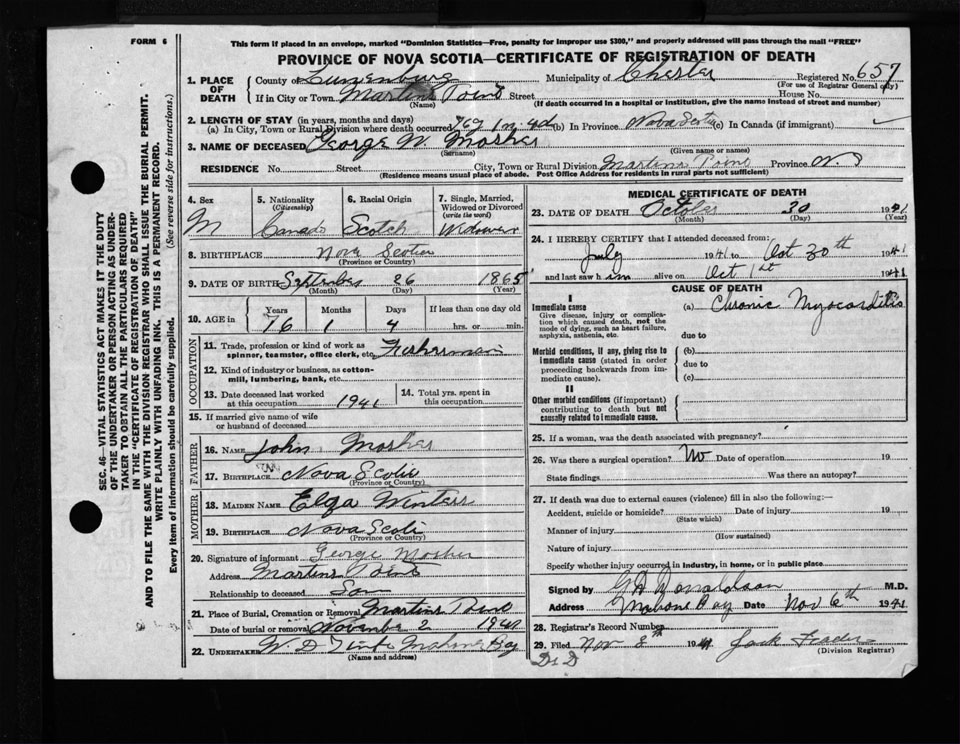 FORM 6
This form if placed in an envelope, marked "Dominion Statistics—Free, penalty for improper use $300," and properly addressed will pass through the mail "FREE"
PROVINCE OF NOVA SCOTIA—CERTIFICATE OF REGISTRATION OF DEATH
1. PLACE OF DEATH County of Lunenburg Municipality of Chester Registered No. 657
(For use of Registrar General only)
If in City or Town Martins Point Street House No.
(Name) (If death occurred in a hospital or institution, give the name instead of street and number)
2. LENGTH OF STAY (in years, months and days)
(a) In City, Town or Rural Division where death occurred 76y 1m 4d (b) In Province Nova Scotia (c) In Canada (if immigrant)
3. NAME OF DECEASED George W. Mosher
(Surname) (Given name or names)
RESIDENCE No. Street City, Town or Rural Division Martins Point Province N.S
(Residence means usual place of abode. Post Office Address for residents in rural parts not sufficient)
4. Sex
M
5. Nationality
(Citizenship)
Canada
6. Racial Origin
Scotch
7. Single, Married, Widowed or Divorced
(write the word)
Widower
8. BIRTHPLACE Nova Scotia
(Province or Country)
9. DATE OF BIRTH September 26 1865
(Month) (Day) (Year)
10. AGE in Years Months Days If less than one day old
76 1 4 hrs. or min.
OCCUPATION
11. Trade, profession or kind of work as spinner, teamster, office clerk, etc. Fisherman
12. Kind of industry or business, as cotton-mill, lumbering, bank, etc.
13. Date deceased last worked at this occupation 1941
14. Total yrs. spent in this occupation
15. If married give name of wife or husband of deceased
FATHER
16. NAME John Mosher
17. BIRTHPLACE Nova Scotia
(Province or Country)
MOTHER
18. MAIDEN NAME Winters
19. BIRTHPLACE Nova Scoti
(Province or Country)
20. Signature of informant George Mosher
Address Martins Point
Relationship to deceased Son
21. Place of Burial, Cremation or Removal Martins Point
Date of burial or removal November 2
22. UNDERTAKER W. D. Mahone Bay
(Name and address)
MEDICAL CERTIFICATE OF DEATH
23. DATE OF DEATH October 30 1941
(Month) (Day) (Year)
24. I HEREBY CERTIFY that I attended deceased from:
July 1941 to Oct 30th 1941
and last saw him alive on Oct 1st 1941
CAUSE OF DEATH
I
Immediate cause
Give disease, injury or complication which caused death, not the mode of dying, such as heart failure, asphyxia, asthenia, etc.
(a) Chronic Myocarditis
due to
Morbid conditions, if any, giving rise to immediate cause (stated in order proceeding backwards from immediate cause).
(b)
due to
(c)
II
Other morbid conditions (if important) contributing to death but not causally related to immediate cause.
25. If a woman, was the death associated with pregnancy?
26. Was there a surgical operation? No Date of operation 19
State findings Was there an autopsy?
27. If death was due to external causes (violence) fill in also the following:—
Accident, suicide or homicide? Date of injury 19
(State which)
Manner of injury
(How sustained)
Nature of injury
Specify whether injury occurred in industry, in home, or in public place
Signed by Donaldson M.D.
Address Mahone Bay Date Nov 6th 1941
28. Registrar's Record Number
29. Filed Nov 8th 1941 Jack
(Division Registrar)
SEC. 46—VITAL STATISTICS ACT MAKES IT THE DUTY
OF THE UNDERTAKER OR PERSON ACTING AS UNDER-
TAKER TO OBTAIN ALL THE PARTICULARS REQUIRED
IN THE "CERTIFICATE OF REGISTRATION OF DEATH"
AND TO FILE THE SAME WITH THE DIVISION REGISTRAR WHO SHALL ISSUE THE BURIAL PERMIT.
WRITE PLAINLY WITH UNFADING INK. THIS IS A PERMANENT RECORD.
Every item of information should be carefully supplied. (See reverse side for instructions.)